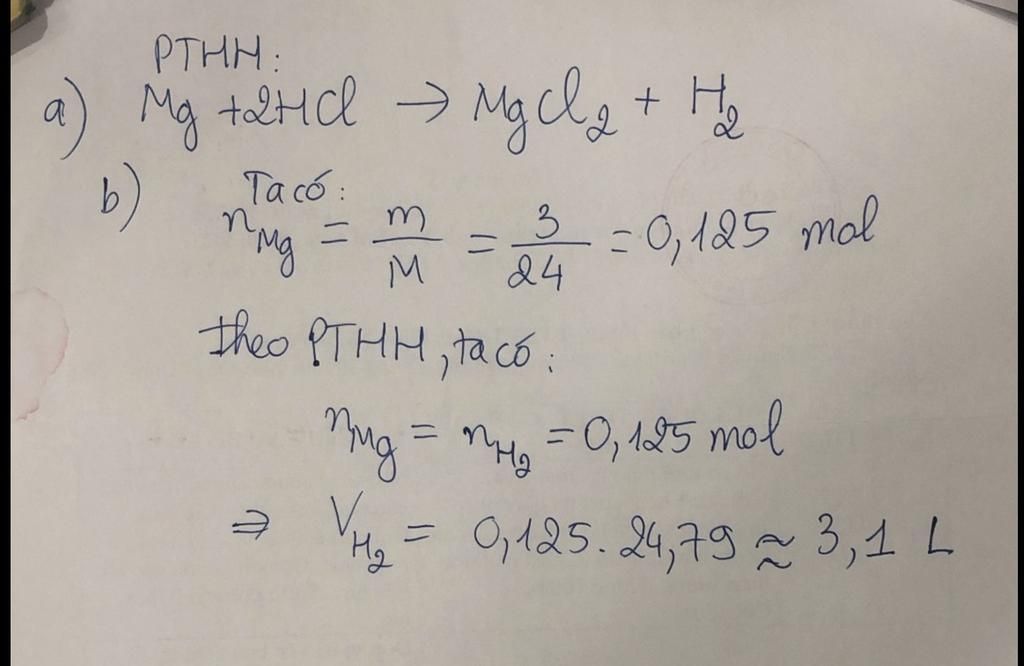 PTHH:
a) Mg + 2HCl → MgCl₂ + H₂
b) Ta có:
n_Mg = m/M = 3/24 = 0,125 mol
theo PTHH, ta có:
n_Mg = n_H₂ = 0,125 mol
⇒ V_H₂ = 0,125. 24,79 ≈ 3,1 L